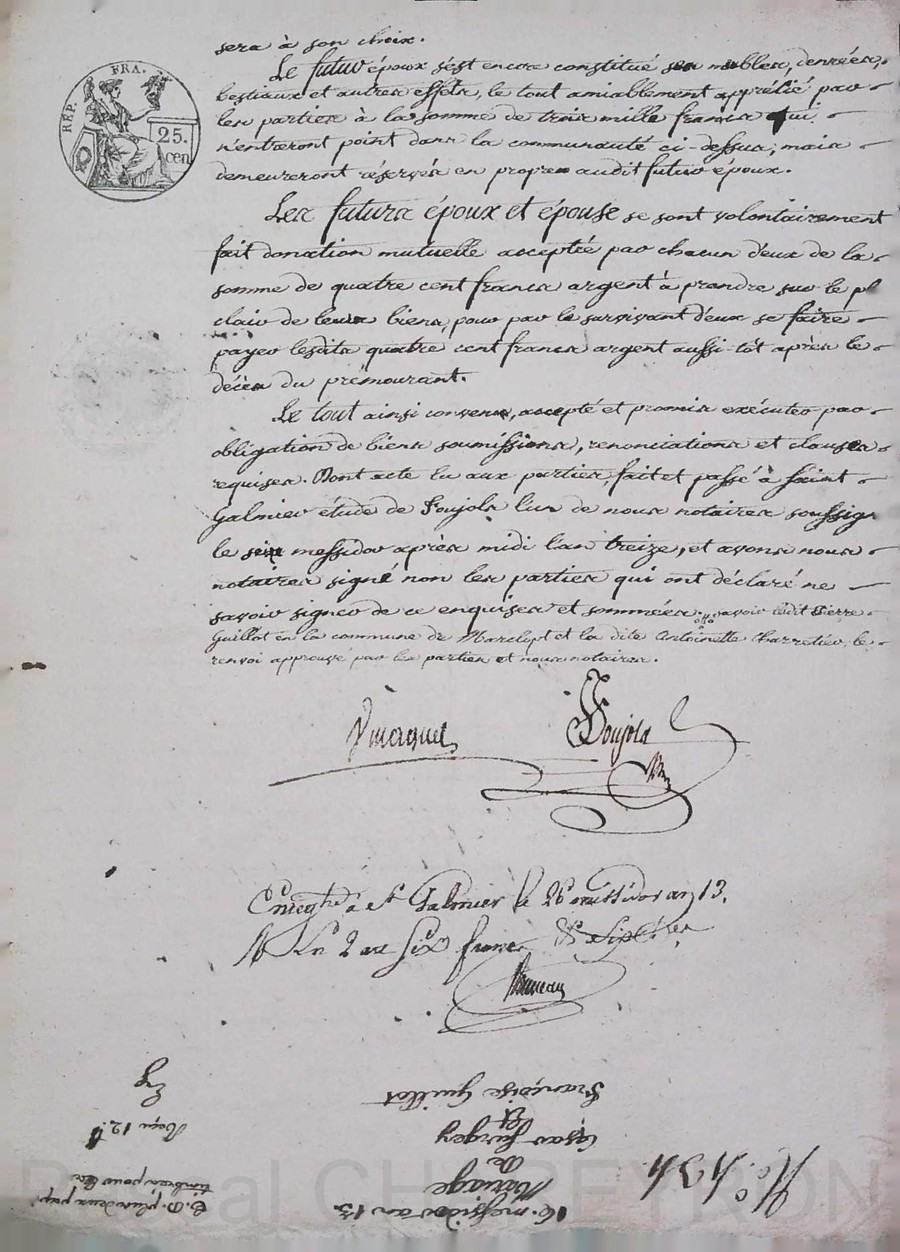 RÉP. FRA.
25.
cen
sera à son choix.
Le futur époux s'est encore constitué ses meubles, denrées,
bestiaux et autres effets, le tout amiablement apprétié par
les parties à la somme de trois mille francs qui
n'entreront point dans la communauté ci-dessus; mais
demeureront réservés en propres audit futur époux.
Les futurs époux et épouse se sont volontairement
fait donation mutuelle acceptée par chacun d'eux de la
somme de quatre cent francs argent à prendre sur le pl
clair de leurs biens, pour par le survivant d'eux se faire
payer lesdits quatre cent francs argent aussi-tôt après le
décès du prémourant.
Le tout ainsi convenu, accepté et promis exécuter par
obligation de biens soumissions, renonciations et clauses
requises. Dont acte lu aux parties, fait et passé à Saint
Galmier étude de Soujols l'un de nous notaires soussig
le seize messidor après midi l'an treize, et avons nous
notaires signé non les parties qui ont déclaré ne
savoir signer de ce enquises et sommées. savoir ledit Pierre
Guillot en la commune de Marclopt et la dite Antoinette Charretier, le
renvoi approuvé par les parties et nous notaires.
Soujols
Enregtré à St Galmier le 26 messidor an 13.
six francs
16. messidor an 13.
Mariage
De
César Surgey
Et
Françoise Guillot
No. 434
C. D. plus deux pap.
timbrés pour les
Reçu 12 f
Pascal CHAMBEYRON